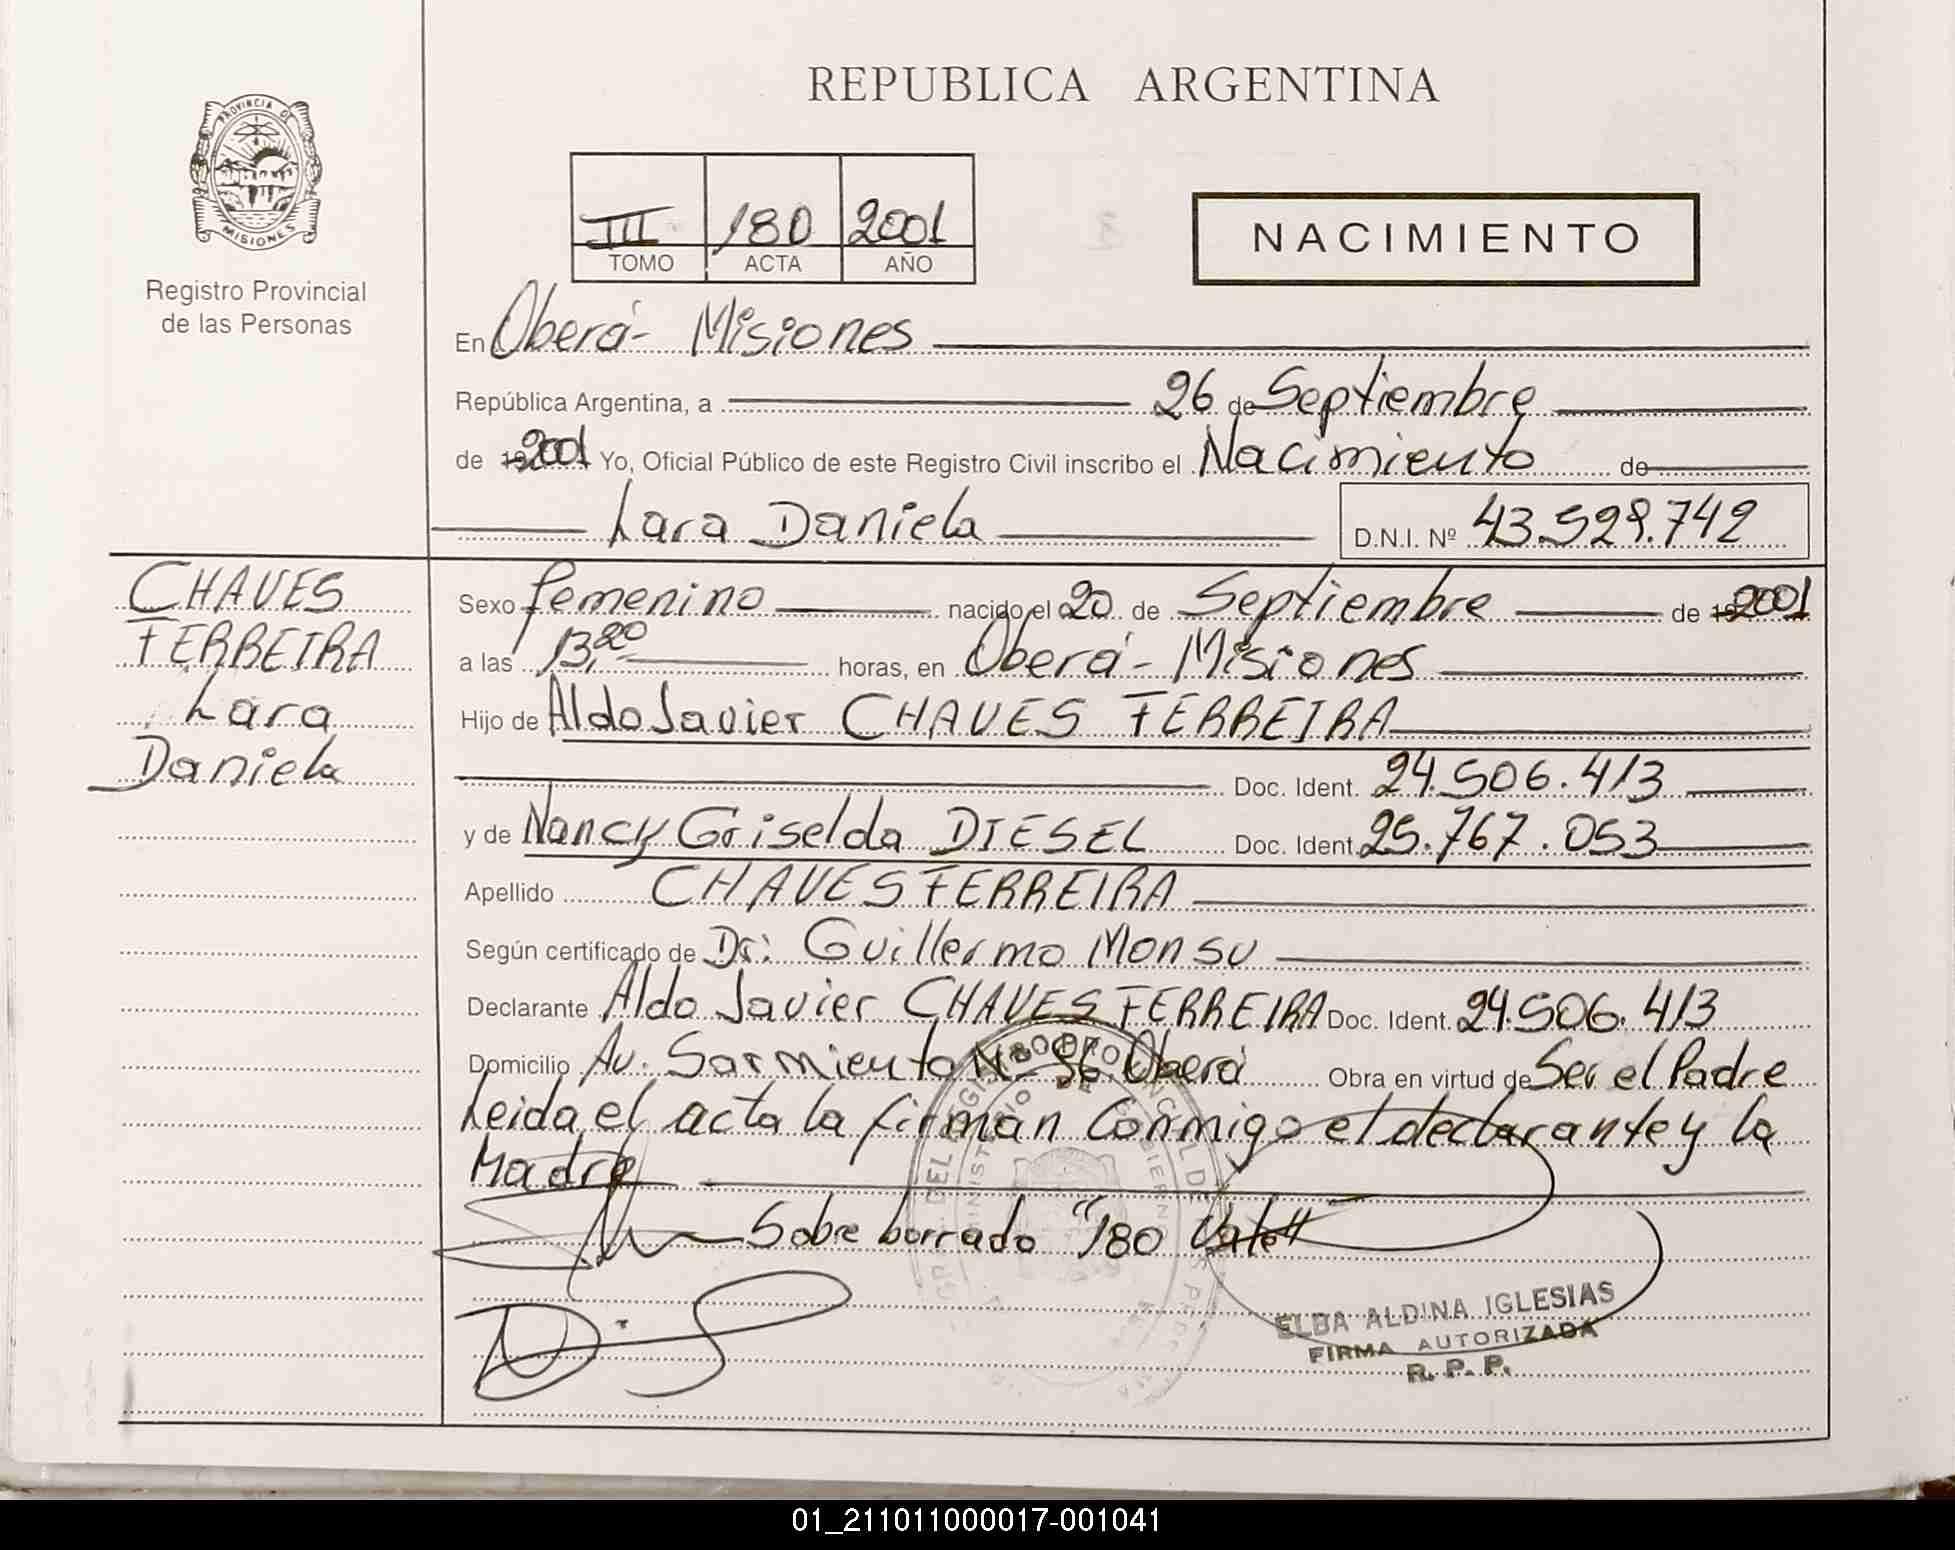 REPUBLICA ARGENTINA
PROVINCIA DE
MISIONES
Registro Provincial
de las Personas
III 180 2001
TOMO ACTA AÑO
NACIMIENTO
En Oberá - Misiones
República Argentina, a 26 de Septiembre
de 2001 Yo, Oficial Público de este Registro Civil inscribo el Nacimiento de
Lara Daniela D.N.I. Nº 43.529.742
CHAVES
FERREIRA
Lara
Daniela
Sexo femenino nacido el 20 de Septiembre de 2001
a las 13,20 horas, en Oberá - Misiones
Hijo de Aldo Javier CHAVES FERREIRA
Doc. Ident. 24.506.413
y de Nancy Griselda DIESEL Doc. Ident. 25.767.053
Apellido CHAVES FERREIRA
Según certificado de Dr: Guillermo Monsu
Declarante Aldo Javier CHAVES FERREIRA Doc. Ident. 24.506.413
Domicilio Av. Sarmiento Nº 56 Oberá Obra en virtud de Ser el Padre
Leida el acta la firman Conmigo el declarante y la
Madre
Sobre borrado "180 Vale"
ELBA ALDINA IGLESIAS
FIRMA AUTORIZADA
R. P. P.
01_211011000017-001041